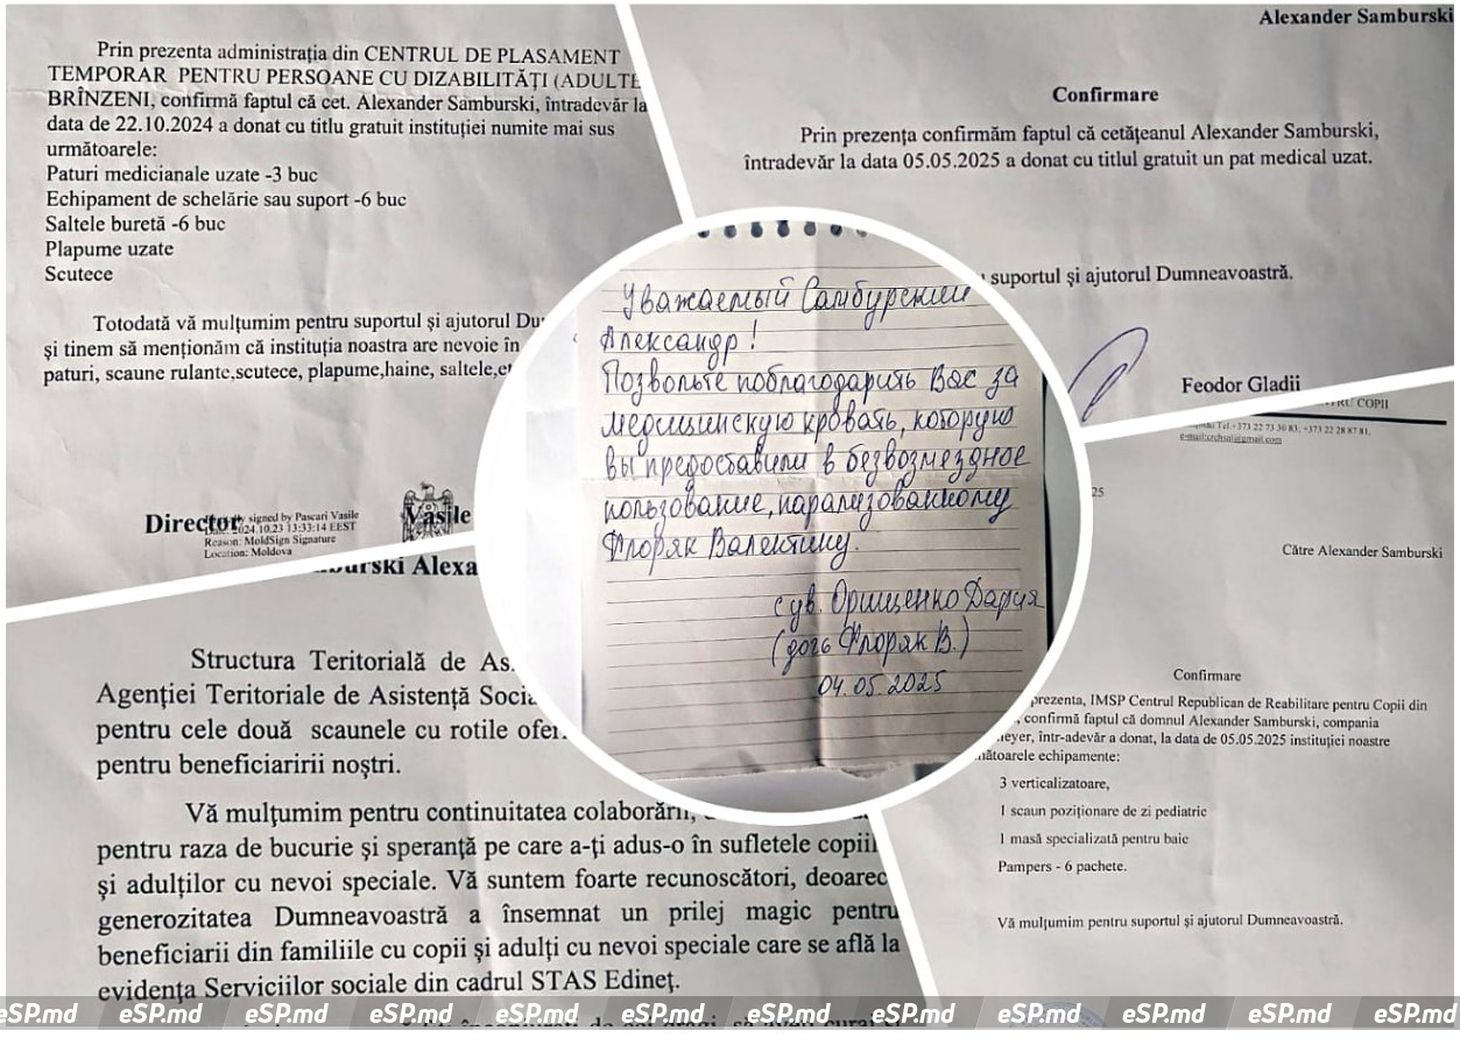 Prin prezenta administrația din CENTRUL DE PLASAMENT
TEMPORAR PENTRU PERSOANE CU DIZABILITĂȚI (ADULTE
BRÎNZENI, confirmă faptul că cet. Alexander Samburski, întradevăr la
data de 22.10.2024 a donat cu titlu gratuit instituției numite mai sus
următoarele:
Paturi medicianale uzate -3 buc
Echipament de schelărie sau suport -6 buc
Saltele buretă -6 buc
Plapume uzate
Scutece
Totodată vă mulțumim pentru suportul și ajutorul
și tinem să menționăm că instituția noastra are nevoie în
paturi, scaune rulante,scutece, plapume,haine, saltele,
Director
signed by Pascari Vasile
2024.10.23 13:33:14 EEST
Reason: MoldSign Signature
Location: Moldova
Vasile
Alexander Samburski
Confirmare
Prin prezența confirmăm faptul că cetățeanul Alexander Samburski,
întradevăr la data 05.05.2025 a donat cu titlul gratuit un pat medical uzat.
suportul și ajutorul Dumneavoastră.
Feodor Gladii
Уважаемый Самбурский
Александр!
Позвольте поблагодарить Вас за
медицинскую кровать, которую
вы предоставили в безвозмездное
пользование, парализованному
Флоряк Валентину.
с ув. Орищенко Дария
(дочь Флоряк В.)
04.05.2025
Structura Teritorială de
Agenției Teritoriale de Asistență
pentru cele două scaunele cu rotile
pentru beneficiaririi noștri.
Vă mulțumim pentru continuitatea colaborării,
pentru raza de bucurie și speranță pe care a-ți adus-o în sufletele
și adulților cu nevoi speciale. Vă suntem foarte recunoscători,
generozitatea Dumneavoastră a însemnat un prilej magic pentru
beneficiarii din familiile cu copii și adulți cu nevoi speciale care se află la
evidența Serviciilor sociale din cadrul STAS Edineț.
COPII
Tel.+373 22 73 30 83, +373 22 28 87 81,
Către Alexander Samburski
Confirmare
prezenta, IMSP Centrul Republican de Reabilitare pentru Copii din
confirmă faptul că domnul Alexander Samburski, compania
într-adevăr a donat, la data de 05.05.2025 instituției noastre
echipamente:
3 verticalizatoare,
1 scaun poziționare de zi pediatric
1 masă specializată pentru baie
Pampers - 6 pachete.
Vă mulțumim pentru suportul și ajutorul Dumneavoastră.
eSP.md eSP.md eSP.md eSP.md eSP.md eSP.md eSP.md eSP.md eSP.md eSP.md eSP.md eSP.md